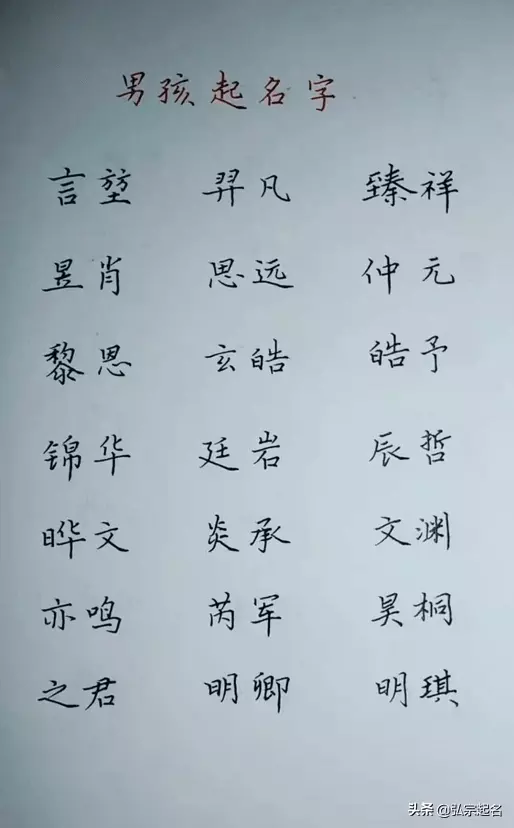 男孩起名字
言堃 羿凡 臻祥
昱肖 思远 仲元
黎恩 玄皓 皓予
锦华 廷岩 辰哲
晔文 炎承 文渊
亦鸣 芮军 昊桐
之君 明卿 明琪
头条 @弘宗起名